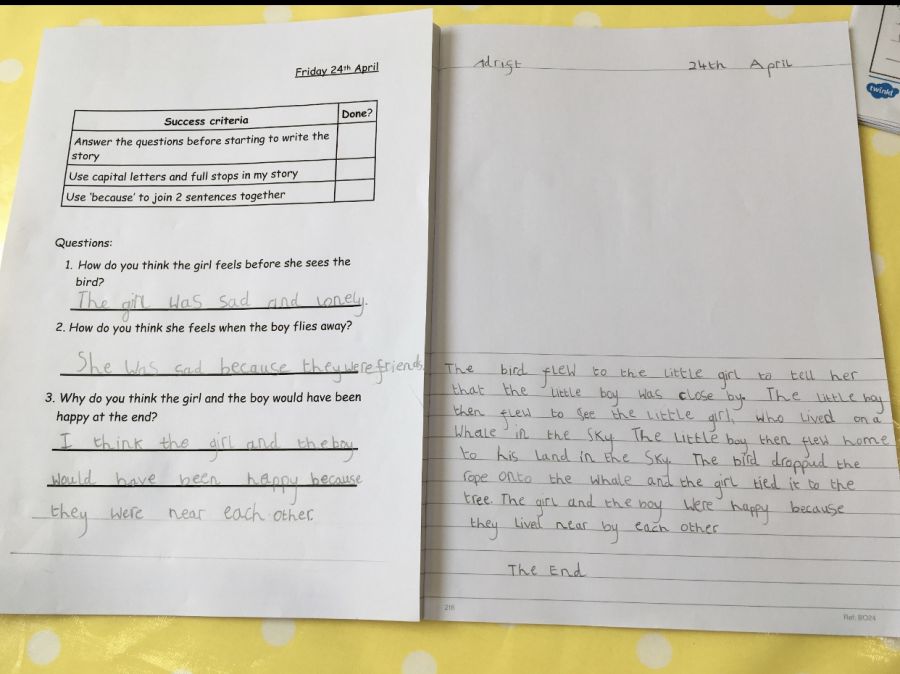 Friday 24th April
Success criteria Done?
Answer the questions before starting to write the
story
Use capital letters and full stops in my story
Use 'because' to join 2 sentences together
Questions:
1. How do you think the girl feels before she sees the
bird?
The girl was sad and lonely.
2. How do you think she feels when the boy flies away?
She was sad because they were friends.
3. Why do you think the girl and the boy would have been
happy at the end?
I think the girl and the boy
would have been happy because
they were near each other.
24th April
The bird flew to the little girl to tell her
that the little boy was close by. The little boy
then flew to see the little girl, who lived on a
whale in the sky. The little boy then flew home
to his land in the sky. The bird droppud the
rope onto the whale and the girl tied it to the
tree. The girl and the boy were happy because
they lived near by each other
The End
218
Ref: BO24
twinkl